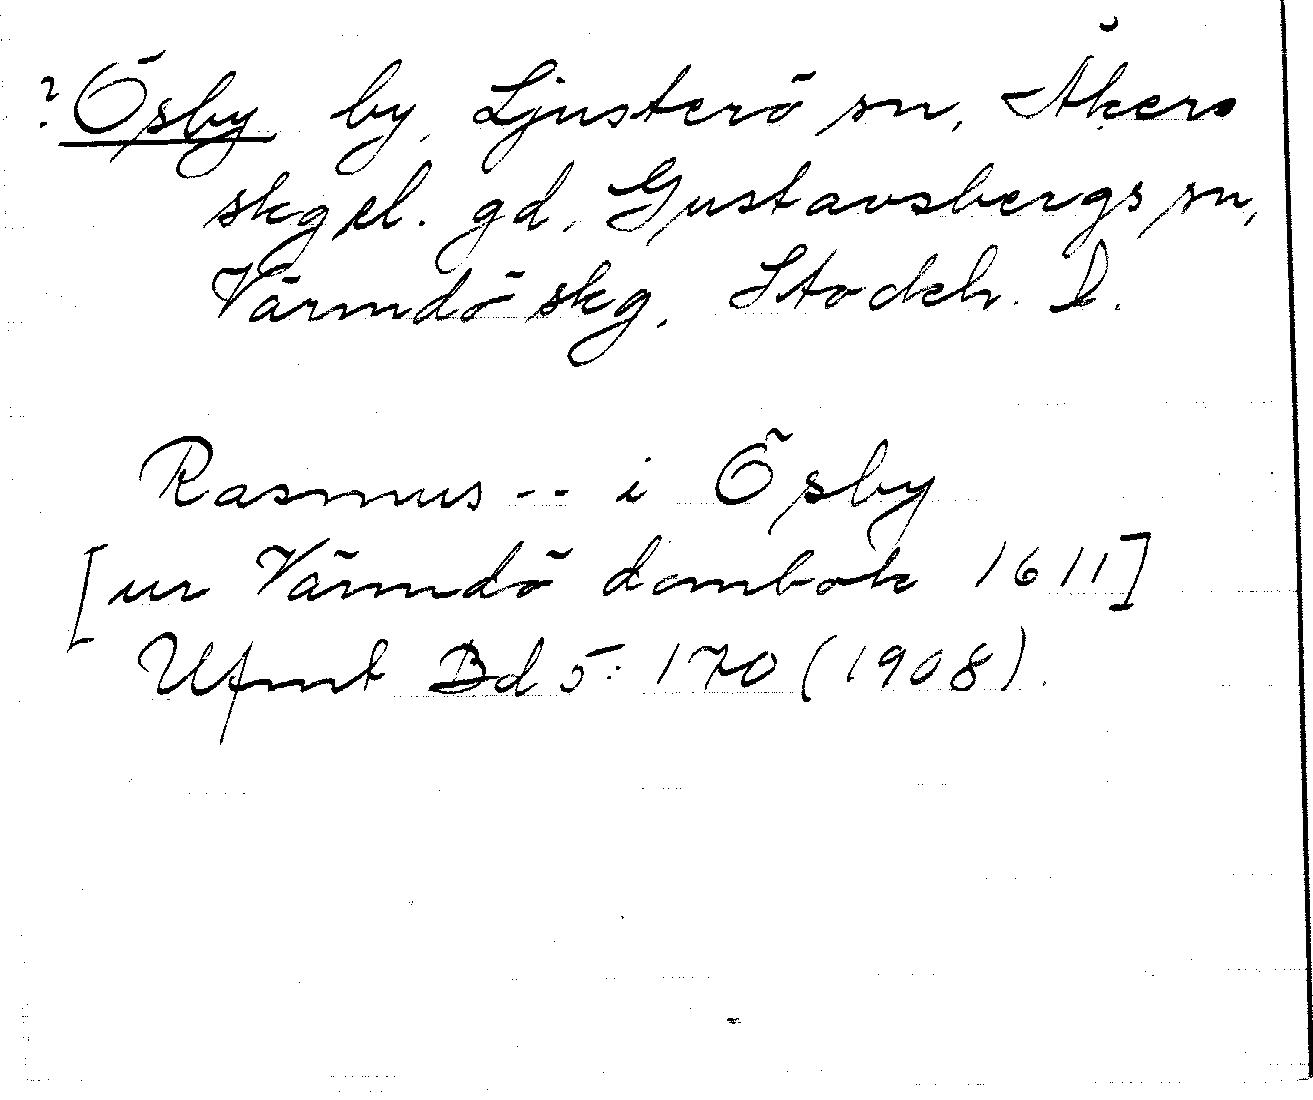 ? Ösby by, Ljusterö sn, Åkers
skg el. gd, Gustavsbergs sn,
Värmdö skg, Stockh. L.
Rasmus -- i Ösby
[ur Värmdö dombok 1611]
Ufmt Bd 5: 170 (1908).